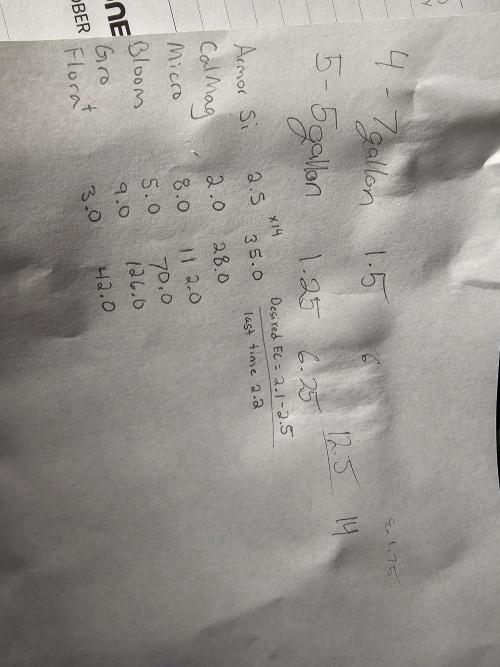 ONE
OBER
4 - 7gallon 1.5 6
5 - 5gallon 1.25 6.25
12.5
14
x14
Armor Si 2.5 35.0
CalMag 2.0 28.0
Micro 8.0 112.0
Bloom 5.0 70.0
Gro 9.0 126.0
Flora+ 3.0 42.0
Desired EC = 2.1-2.5
last time 2.2